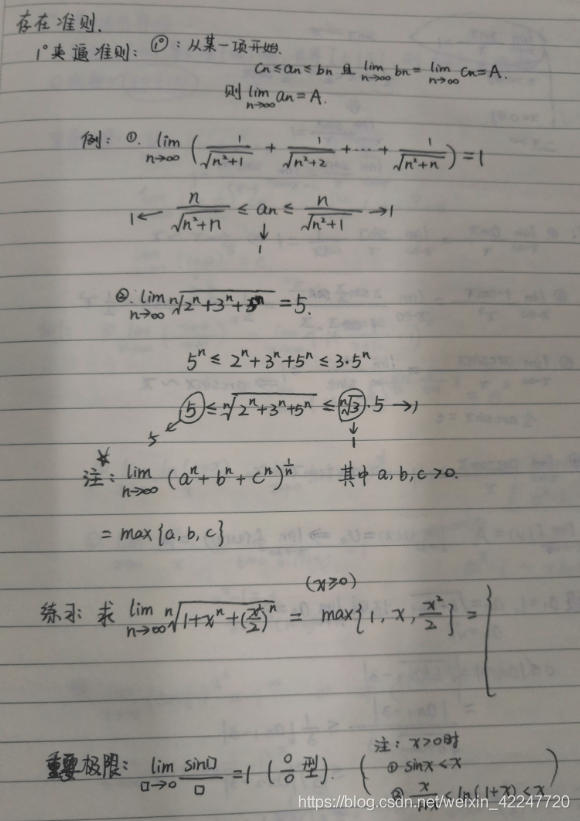 存在准则.
1° 夹逼准则: ①°: 从某一项开始.
cn ≤ an ≤ bn 且 lim n→∞ bn = lim n→∞ cn = A.
则 lim n→∞ an = A.
例: ①. lim n→∞ ( 1/√(n²+1) + 1/√(n²+2) + ⋯ + 1/√(n²+n) ) = 1
1 ← n/√(n²+n) ≤ an ≤ n/√(n²+1) → 1
↓
1
②. lim n→∞ ⁿ√(2ⁿ+3ⁿ+5ⁿ) = 5.
5ⁿ ≤ 2ⁿ+3ⁿ+5ⁿ ≤ 3·5ⁿ
5 ≤ ⁿ√(2ⁿ+3ⁿ+5ⁿ) ≤ ⁿ√3·5 → 1
5 ↓
1
注: lim n→∞ (aⁿ+bⁿ+cⁿ)^(1/n) 其中 a,b,c>0.
= max{a,b,c}
(x≥0)
练习: 求 lim n→∞ ⁿ√(1+xⁿ+(x²/2)ⁿ) = max{1, x, x²/2} = {
重要极限: lim □→0 sin□/□ = 1 (0/0 型).
(注: x>0时
① sinx < x
② x/1+x < ln(1+x) < x)
https://blog.csdn.net/weixin_42247720